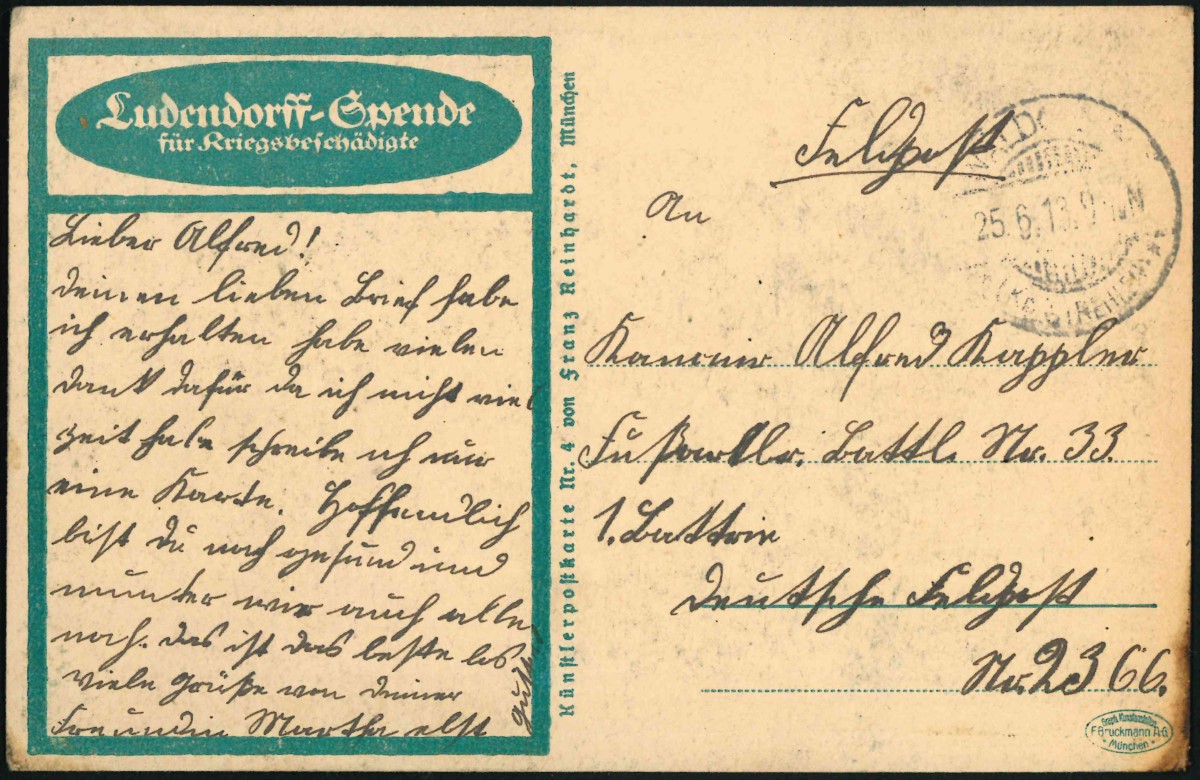 Ludendorff-Spende
für Kriegsbeschädigte
Lieber Alfred!
deinen lieben Brief habe
ich erhalten habe vielen
dank dafür da ich nicht viel
zeit habe schreibe ich nur
eine Karte. Hoffendlich
bist du noch gesund und
munter wir auch alle
noch. das ist das beste
viele Grüße von deiner
Freundin Martha
Künstlerpostkarte Nr. 4 von Franz Reinhardt, München
Feldpost
25.6.18. 9 N
An
Kanonier Alfred Kappler
Fußartlr. Battl. Nr. 33.
1. Battrie
deutsche Feldpost
Nr. 2366.
Graph. Kunstanstalten
F. Bruckmann A.G.
München